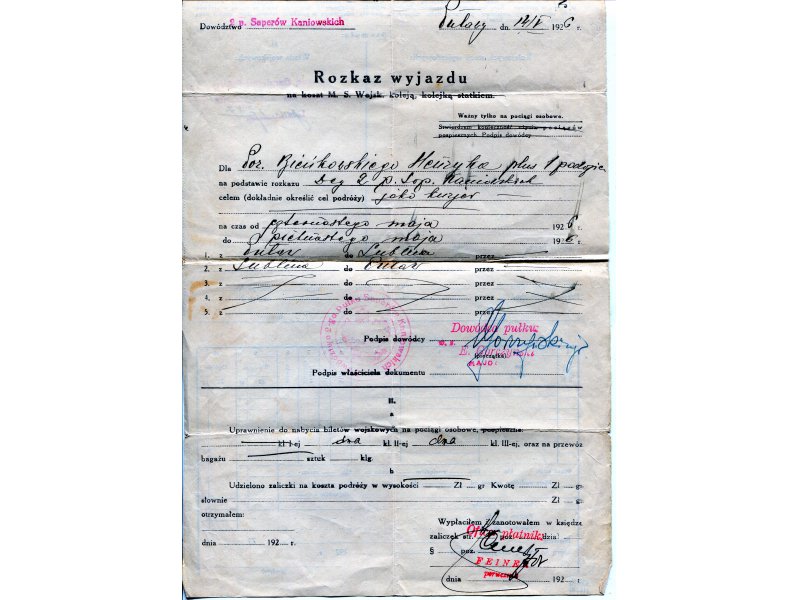 2 p. Saperów Kaniowskich
Dowództwo
Puławy dn. 12/V 1926 r.
Rozkaz wyjazdu
na koszt M. S. Wojsk. koleją, kolejką statkiem.
Ważny tylko na pociągi osobowe.
Stwierdzam konieczność użycia pociągów
pospiesznych. Podpis dowódcy
Dla Por. Bieńkowskiego Henryka plus 1
na podstawie rozkazu Dcy 2 p. Sap. Kaniowskich
celem (dokładnie określić cel podróży) jako kurjer
na czas od maja 1926 r.
do piętnastego maja 1926 r.
1. z Puław do Lublina przez
2. z Lublina do Puław przez
3. z do przez
4. z do przez
5. z do przez
Dowódca pułku:
Podpis dowódcy
MAJOR
Podpis właściciela dokumentu
II.
a
Uprawnienie do nabycia biletów wojskowych na pociągi osobowe, pospieszne:
kl I-ej dwa kl. II-ej dwa kl. III-ej, oraz na przewóz
bagażu sztuk klg.
b
Udzielono zaliczki na koszta podróży w wysokości Zł gr Kwotę Zł gr
słownie
otrzymałem:
Wypłaciłem i zanotowałem w księdze
zaliczek str. poz.
płatnik
§ poz.
FEINER
porucznik
dnia 192 r.
dnia 192 r.